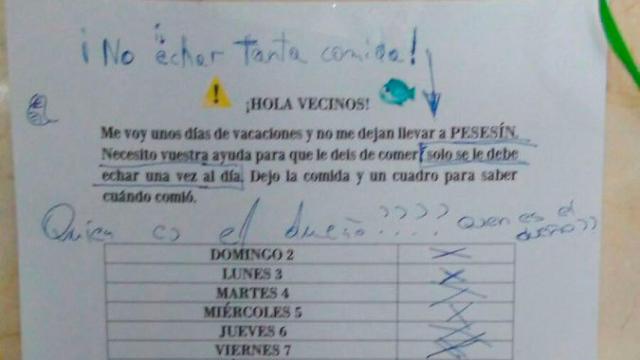 ¡No echar tanta comida!
¡HOLA VECINOS!
Me voy unos días de vacaciones y no me dejan llevar a PESESÍN.
Necesito vuestra ayuda para que le deis de comer, solo se le debe
echar una vez al día. Dejo la comida y un cuadro para saber
cuándo comió.
Quien es el dueño????....
quien es el
dueño??
DOMINGO 2
LUNES 3
MARTES 4
MIÉRCOLES 5
JUEVES 6
VIERNES 7